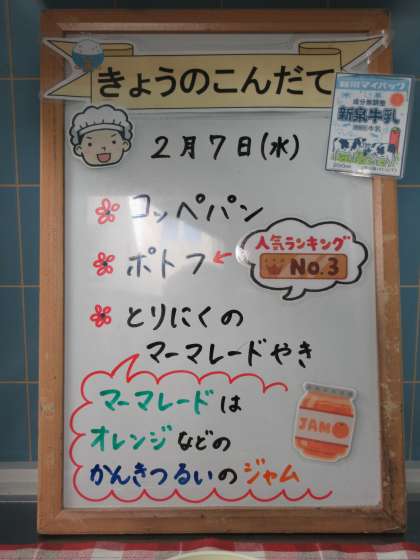 きょうのこんだて
成分無調整
新泉牛乳
2月7日(水)
コッペパン
ポトフ
人気ランキング
No.3
とりにくの
マーマレードやき
マーマレードは
オレンジなどの
かんきつるいのジャム
JAM